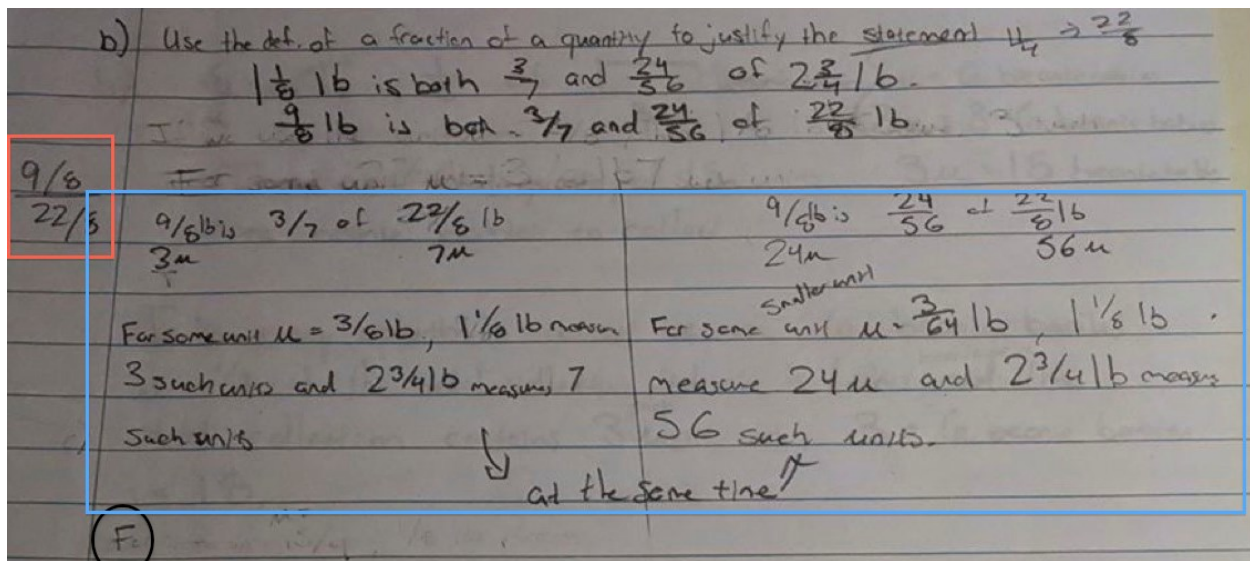 b) Use the def. of a fraction of a quantity to justify the statement 11/4 → 22/8
1 1/8 lb is both 3/7 and 24/56 of 2 3/4 lb.
9/8 lb is both 3/7 and 24/56 of 22/8 lb
9/8
22/8
9/8 lb is 3/7 of 22/8 lb
3u 7u
9/8 lb is 24/56 of 22/8 lb
24u 56u
For some unit u = 3/8 lb, 1 1/8 lb measures
3 such units and 2 3/4 lb measures 7
such units
smaller unit
For some unit u = 3/64 lb, 1 1/8 lb
measure 24u and 2 3/4 lb measures
56 such units.
at the same time
F